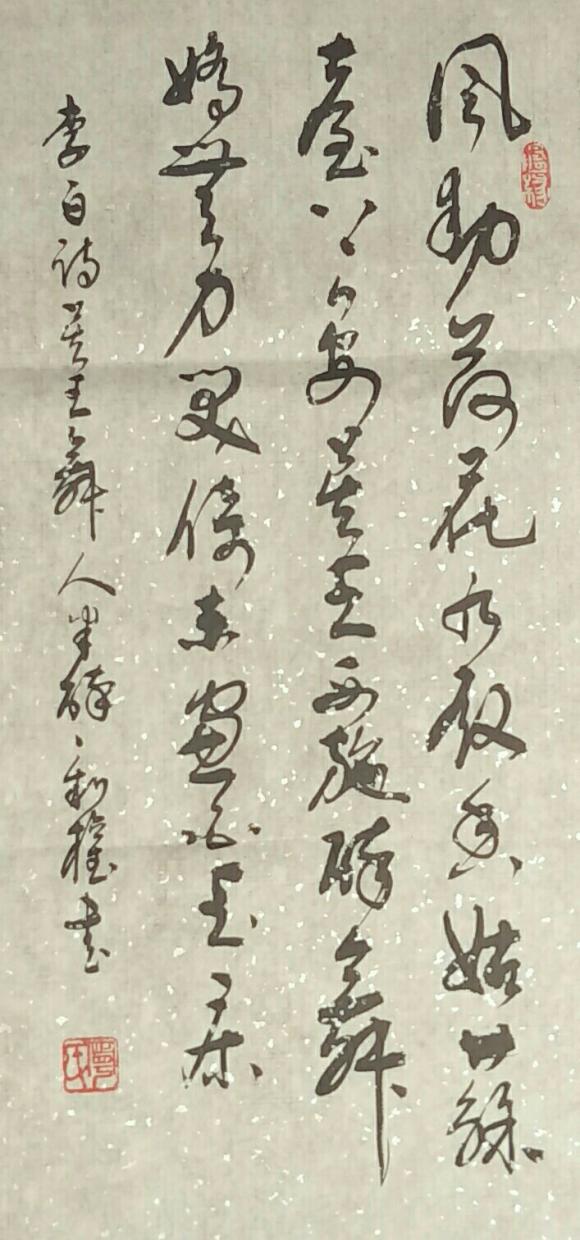 風動荷花水殿香姑蘇
臺上宴吴王西施醉舞
嬌無力笑倚東窗白玉床
李白詩吴王舞人半醉利權書